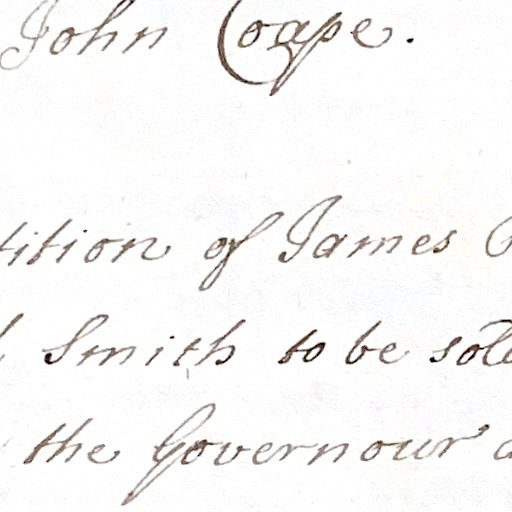 John Coape.
tition of James
Smith to be sole
the Governour